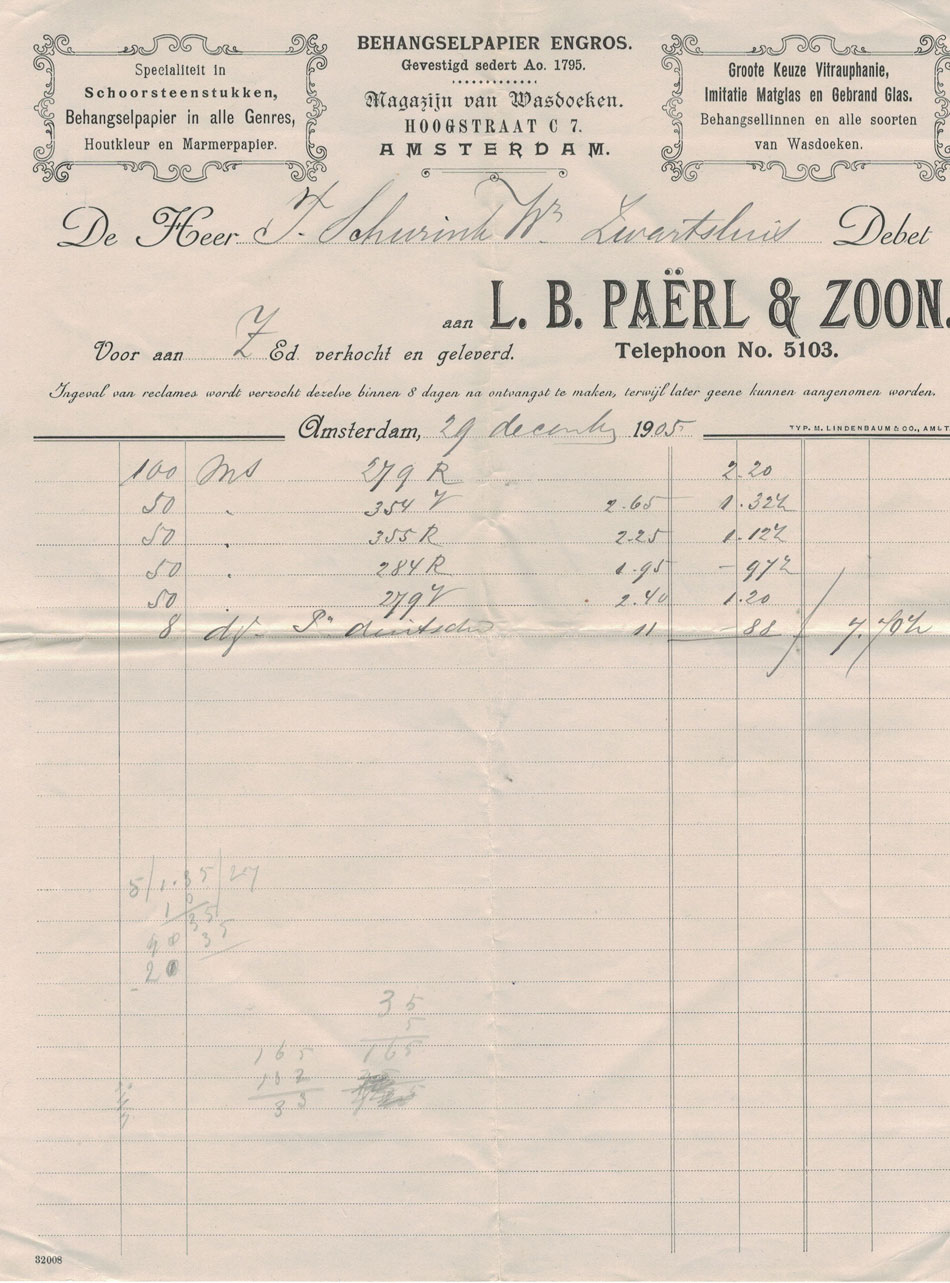 Specialiteit in
Schoorsteenstukken,
Behangselpapier in alle Genres,
Houtkleur en Marmerpapier.
BEHANGSELPAPIER ENGROS.
Gevestigd sedert Ao. 1795.
Magazijn van Wasdoeken.
HOOGSTRAAT C 7.
AMSTERDAM.
Groote Keuze Vitrauphanie,
Imitatie Matglas en Gebrand Glas.
Behangsellinnen en alle soorten
van Wasdoeken.
De Heer T. Schurink Wz. Zwartsluis Debet
aan L. B. PAËRL & ZOON.
Voor aan Z Ed. verkocht en geleverd.
Telephoon No. 5103.
Ingeval van reclames wordt verzocht dezelve binnen 8 dagen na ontvangst te maken, terwijl later geene kunnen aangenomen worden.
Amsterdam, 29 december 1905
TYP. M. LINDENBAUM & CO., AMST
100 279 R 2.20
50 " 354 V 2.65 1.32½
50 " 355 R 2.25 1.12½
50 " 284 R 1.95 - 97½
50 279 V 2.40 1.20
8 11 - 88 7.70½
5/1.35/27
35
5
165 165
132
33
32008